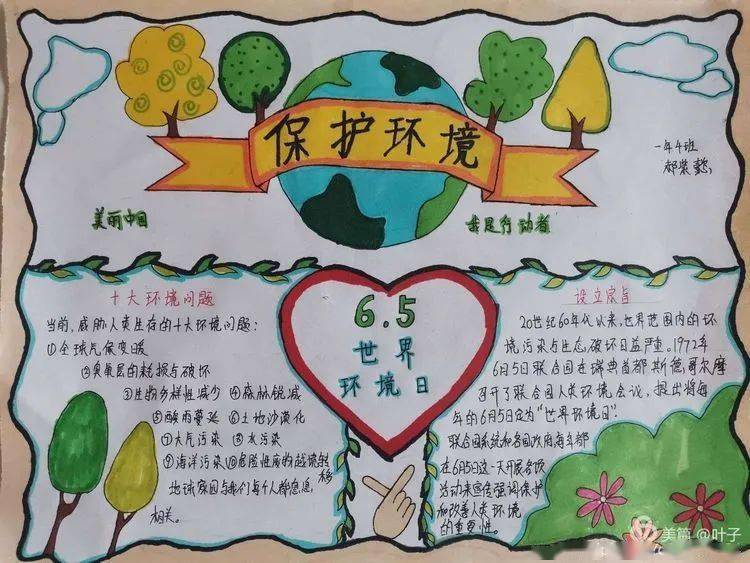 保护环境
一年4班
美丽中国
我是行动者
十大环境问题
当前,威胁人类生存的十大环境问题:
①全球气候变暖
②臭氧层的耗损与破坏
③生物多样性减少 ④森林锐减
⑤酸雨蔓延 ⑥土地沙漠化
⑦大气污染 ⑧水污染
⑨海洋污染 ⑩危险性废物越境转移
地球家园与我们每个人都息息
相关。
6.5
世界
环境日
设立宗旨
20世纪60年代以来,世界范围内的环
境污染与生态破坏日益严重。1972年
6月5日联合国在瑞典首都斯德哥尔摩
召开了联合国人类环境会议,提出将每
年的6月5日定为“世界环境日”
联合国系统和各国政府每年都
在6月5日这一天开展各项
活动来宣传强调保护
和改善人类环境
的重要性。
美篇 @叶子